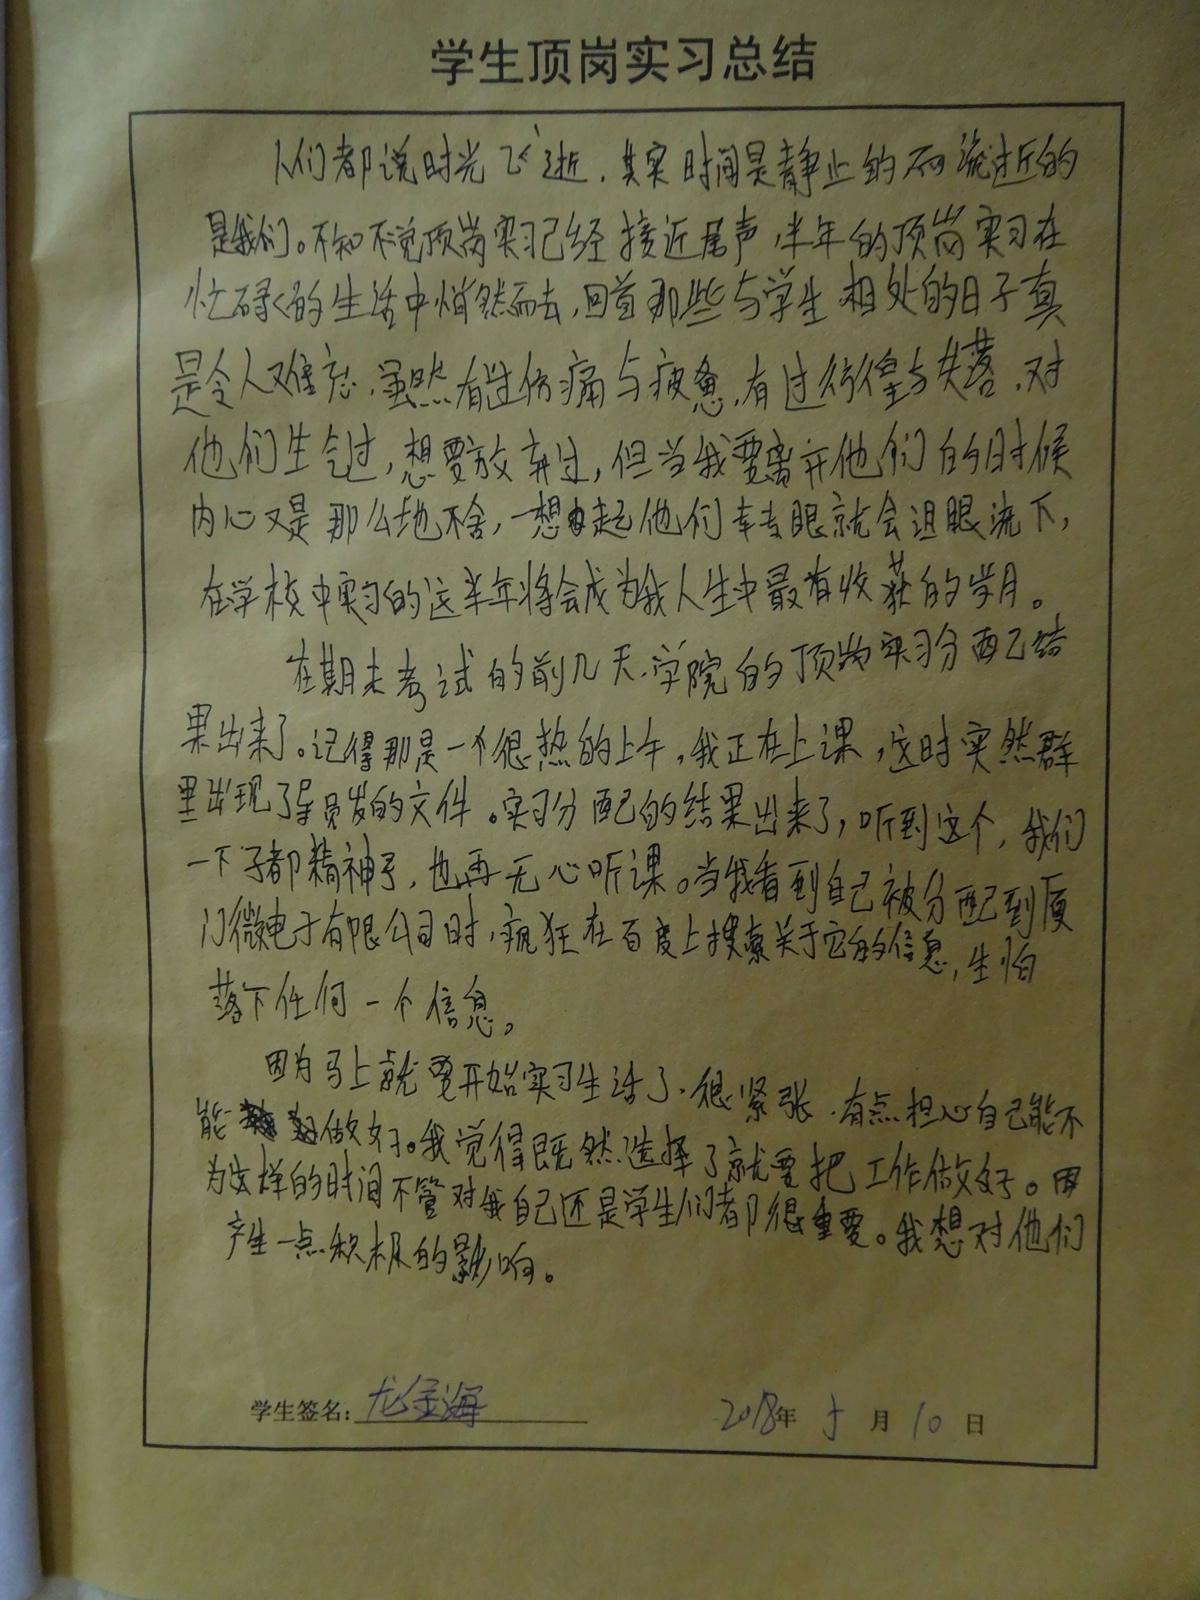 学生顶岗实习总结
人们都说时光飞逝，其实时间是静止的而流过近的
是我们。不知不觉顶岗实习已经接近尾声，半年的顶岗实习在
忙碌的生活中悄然而去，回首那些与学生相处的日子真
是令人难忘，虽然有过伤痛与疲惫，有过彷徨与失落，对
他们生气过，想要放弃过，但当我要离开他们的时候
内心又是那么地不舍，一想起他们幸去眼就会泪眼流下，
在学校中实习的这半年将会成为我人生中最有收获的岁月。
在期末考试的前几天，学院的顶岗实习分配已结
果出来了。记得那是一个很热的上午，我正在上课，这时突然群
里出现了导员发的文件。实习分配的结果出来了，听到这个，我们
一下子都精神了，也再无心听课。当我看到自己被分配到厦
门微电子有限公司时，疯狂在百度上搜索关于它的信息，生怕
落下任何一个信息。
因为马上就要开始实习生活了，很紧张，有点担心自己能不
能做好。我觉得既然选择了就要把工作做好。因
为这样的时间不管对我自己还是学生们都很重要。我想对他们
产生一点积极的影响。
学生签名：龙金海 2018年5月10日